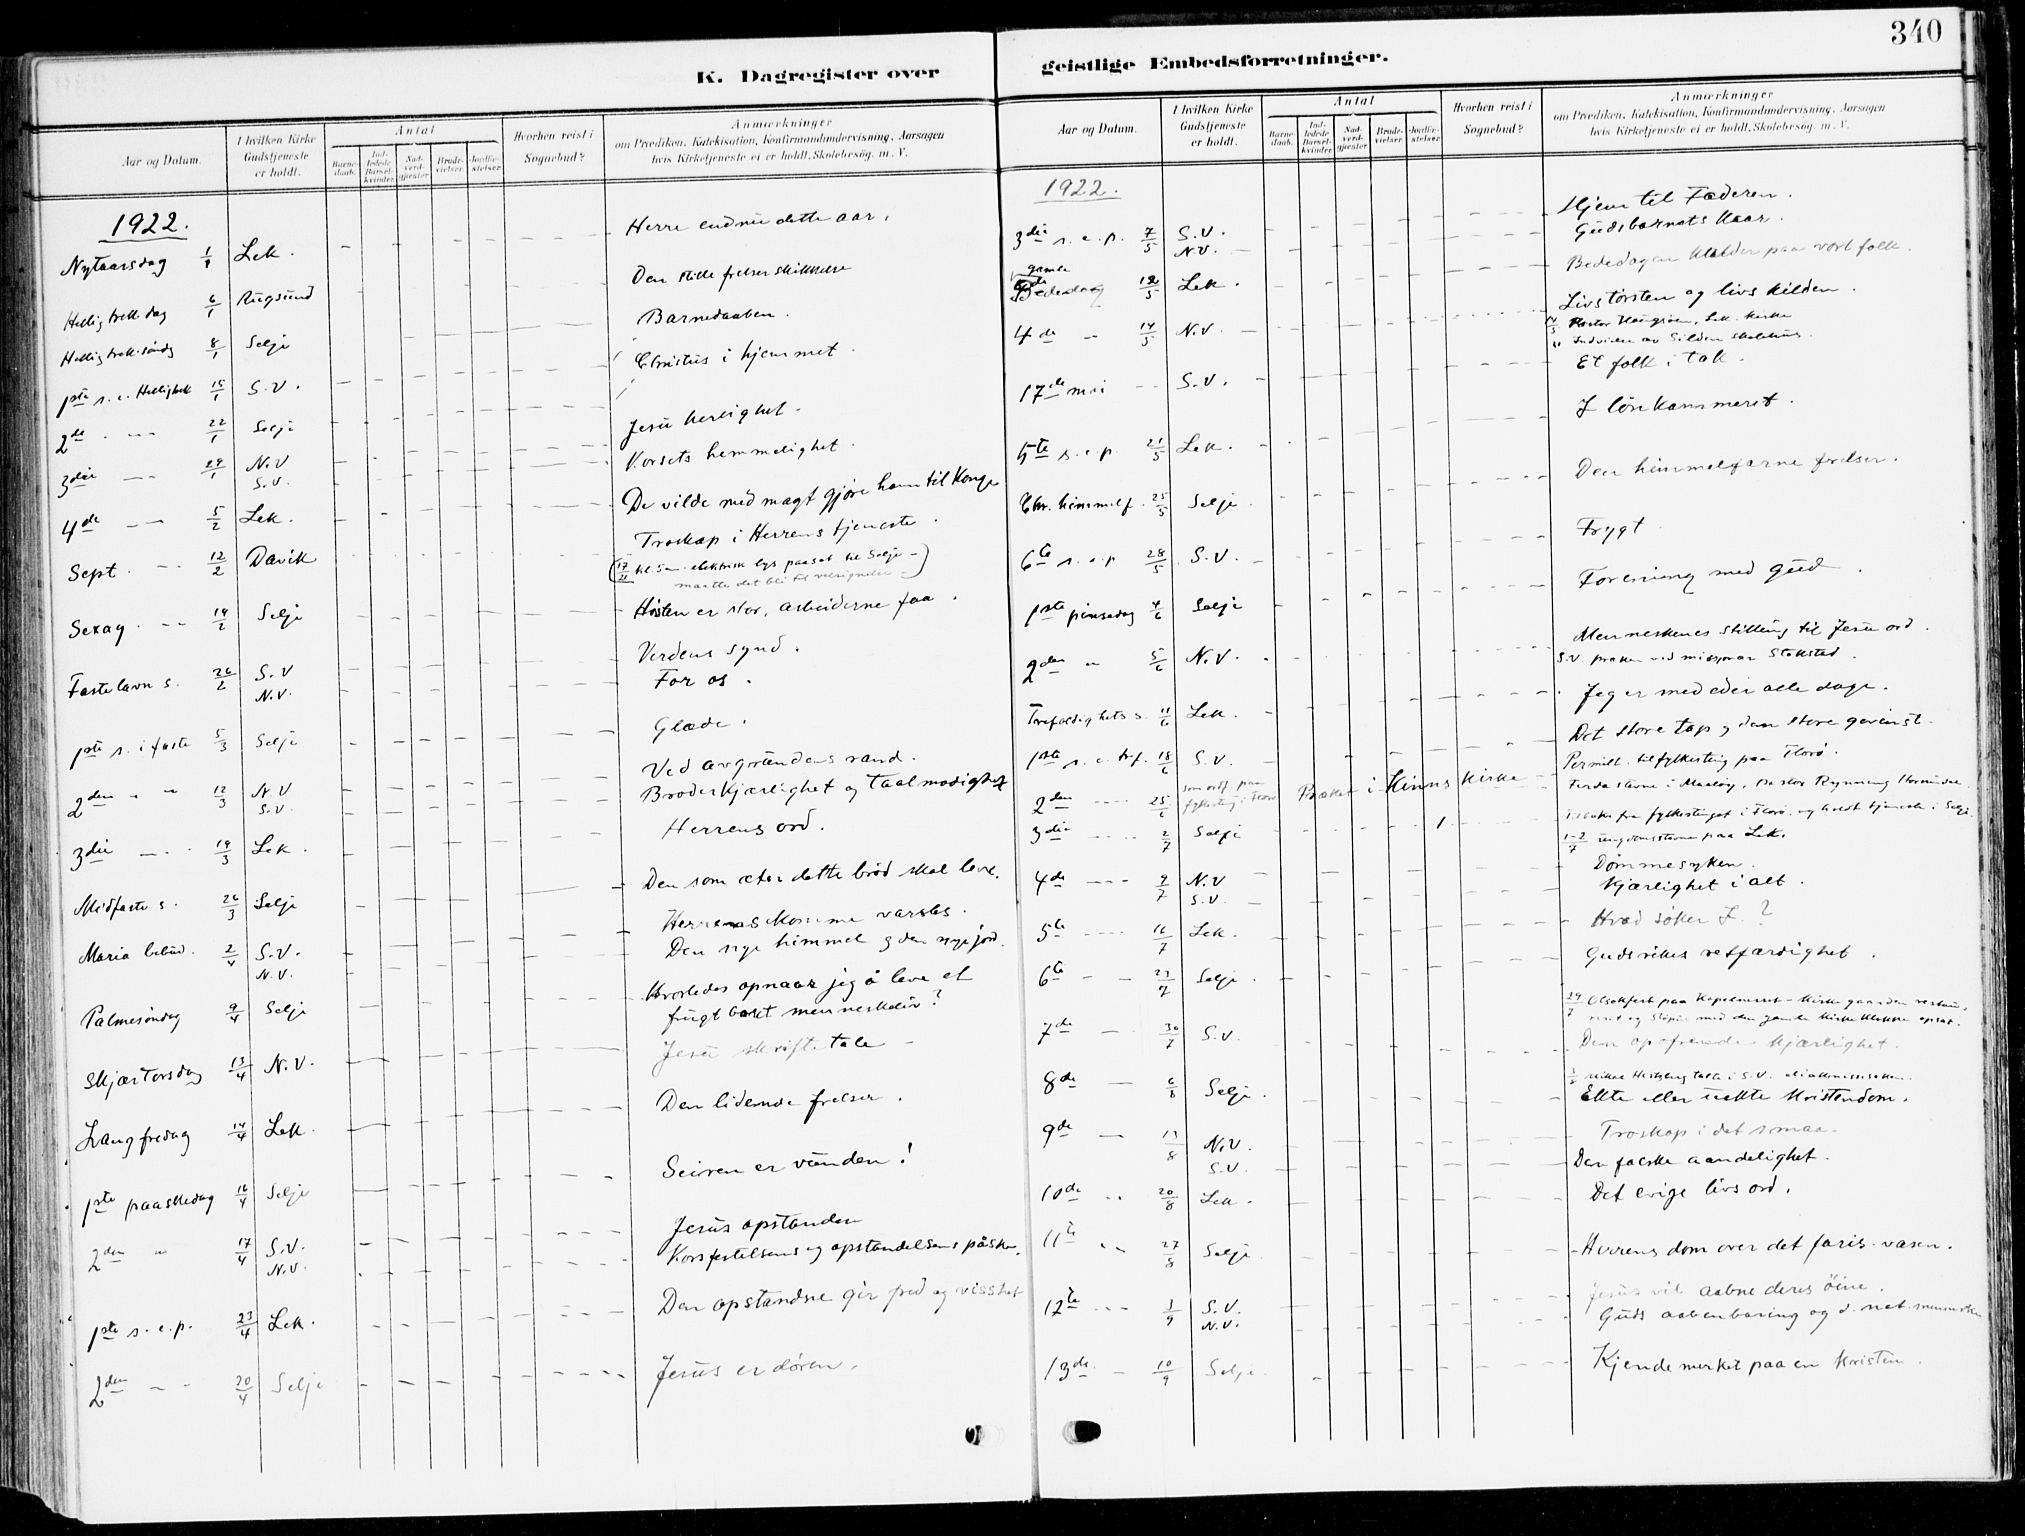 340
K. Dagregister over
geistlige Embedsforretninger.
Aar og Datum.
I hvilken Kirke Gudstjeneste er holdt.
Antal
Barnedaab.
Indledede Barselkvinder.
Nadverdgjæster
Brudevielser
Jordfæstelser
Hvorhen reist i Sognebud?
Anmærkninger
om Prædiken, Katekisation, Konfirmandundervisning, Aarsagen
hvis Kirketjeneste ei er holdt, Skolebesøg. m. V.
1922.
Nytaarsdag 1/1 Lek. Herre endnu dette aar.
Hellig trek. dag 6/1 Rugsund Den stille frelserskikkelse
Hellig trek. søndg 8/1 Selje Barnedaaben.
1ste s. e. Helligtrek 15/1 S.V. Christus i hjemmet.
2de 22/1 Selje Jesu herlighet.
3die 29/1 N.V. Korsets hemmelighet.
S.V.
4de 5/2 Lek. De vilde med magt gjøre ham til Konge
Sept. 12/2 Davik Troskap i Herrens tjeneste.
(17/21 kl 5 em. elektrisk lys paasat til Selje -
maatte det bli til velsignelse -)
Sexag. 19/2 Selje Høsten er stor, arbeiderne faa.
Fastelavn s. 26/2 S.V. Verdens synd.
N.V. For os.
1ste s. i faste 5/3 Selje Glæde.
2den " " 12/3 N.V. Ved avgrundens rand.
S.V. Broderkjærlighet og Taalmodighet
3die 19/3 Lek. Herrens ord.
Midfaste s. 26/3 Selje Den som æter dette brød skal leve.
Maria bebud. 2/4 S.V. Herrens komme varsles.
N.V. Den nye himmel og den nye jord.
Palmesøndag 9/4 Selje Hvorledes opnaar jeg å leve et
frugtbart menneskeliv?
Skjærtorsdag 13/4 N.V. Jesu skriftetale -
Langfredag 14/4 Lek. Den lidende frelser.
1ste paaskedag 16/4 Selje Seiren er vunden!
2den " 17/4 S.V. Jesus opstanden
N.V. Korsfestelsens og opstandelsens påske.
1ste s. e. p. 23/4 Lek. Den opstandne gir fred og visshet
2den 20/4 Selje Jesus er døren.
Aar og Datum.
I hvilken Kirke Gudstjeneste er holdt.
Antal
Barnedaab.
Indledede Barselkvinder.
Nadverdgjæster
Brudevielser
Jordfæstelser
Hvorhen reist i Sognebud?
Anmærkninger
om Prædiken, Katekisation, Konfirmandundervisning, Aarsagen
hvis Kirketjeneste ei er holdt, Skolebesøg. m. V.
1922.
3die s. e. p. 7/5 S.V. Hjem til Faderen.
N.V. Gudsbarnets kaar.
gamle
Bededag 12/5 Lek. Bededagen kalder paa vort folk.
4de " 14/5 N.V. Livstørsten og livskilden.
14/5 Pastor Lek. kirke
" Indvielse av Silden skolehus.
17de mai S.V. Et folk i tak.
5te s. e. p. 21/5 Lek. I lønkammeret.
Chr. himmelf. 25/5 Selje Den himmelfarne frelser.
6te s. e. p. 28/5 S.V. Frygt.
1ste pinsedag 4/6 Selje Forening med Gud.
2den " 5/6 N.V. Menneskenes stilling til Jesu ord.
S.V. præken ved misjonær Stokstad.
Trefoldighets s. 11/6 Lek. Jeg er med eder alle dage.
1ste s. e. tref. 18/6 S.V. Det store tap og den store gevinst.
2den 25/6 som ordf. paa fylkesting i Florø Præket i Kinns kirke Permitt. til fylkesting paa Florø.
3die 2/7 Selje 1. fra fylkestinget i Florø og holdt tjeneste i Selje.
1-2/7 ungdomsstevne paa Lek.
4de 9/7 N.V. Dømmesyken.
S.V. Kjærlighet i alt.
5te 16/7 Lek. Hvad søker I?
6te 23/7 Selje. Gudsrikes retfærdighet.
29/7 Olsokfest paa Kapelneset - kirkegaarden restau-
reret og støpul med den gamle kirkeklokke opsat.
7de 30/7 S.V. Den opofrende kjærlighet.
8de 6/8 Selje. Ekte eller uekte kristendom.
9de 13/8 N.V. Troskap i det smaa.
S.V. Den falske aandelighet.
10de " 20/8 Lek. Det evige livs ord.
11te " 27/8 Selje Herrens dom over det faris. væsen.
12te 3/9 S.V. Jesus vil aabne deres öine.
N.V. Guds aabenbaring og d. nat. menneske
13de 10/9 Selje. Kjendemerket paa en kristen.